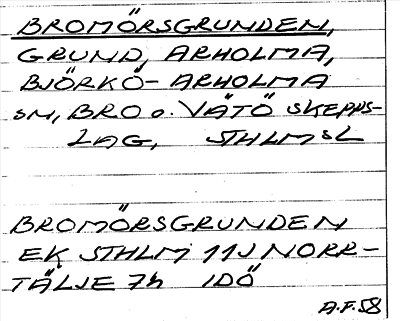 BROMÖRSGRUNDEN,
GRUND, ARHOLMA,
BJÖRKÖ-ARHOLMA
SN, BRO o. VÄTÖ SKEPPS-
LAG, STHLMSL
BROMÖRSGRUNDEN
EK STHLM 11J NORR-
TÄLJE 7h IDÖ
A.F.58